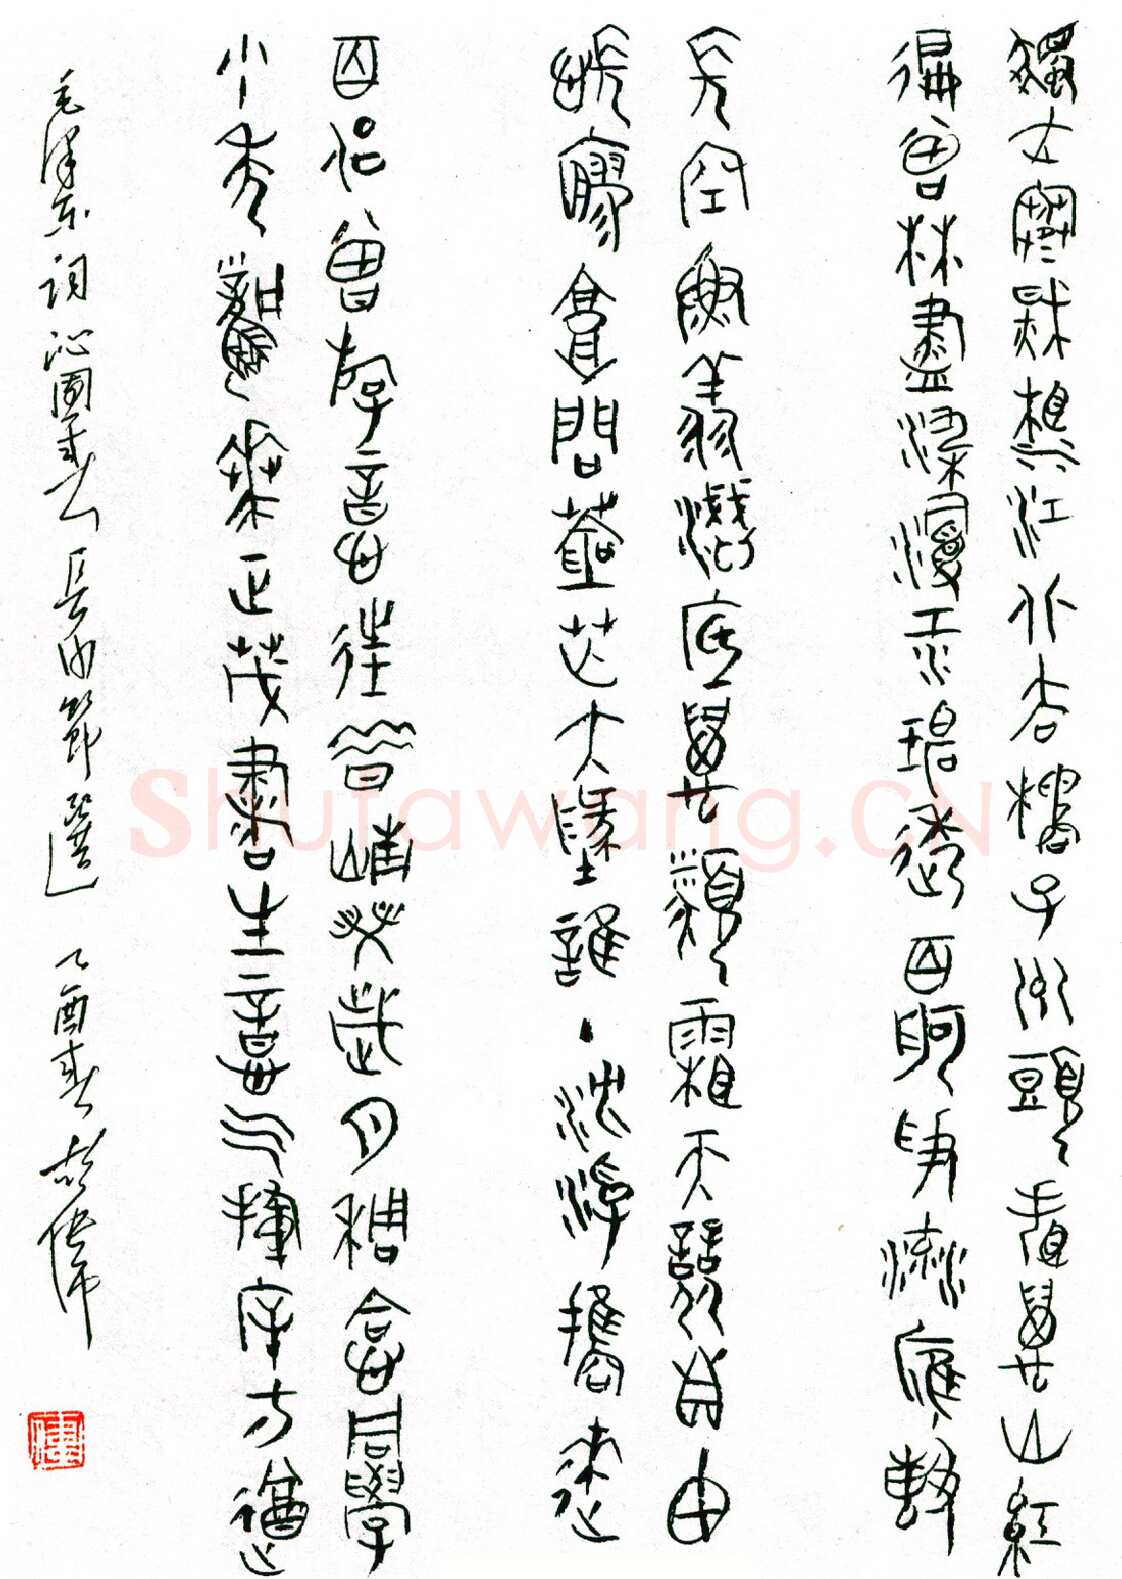 獨立寒秋湘江北去橘子洲頭看萬山紅
徧層林盡染漫江碧透百舸爭流鷹擊
長空魚翔淺底萬類霜天競自由
悵寥廓問蒼茫大地誰主沉浮攜來
百侶曾游憶往昔崢嶸歲月稠恰同學
少年風華正茂書生意氣揮斥方遒
毛澤东詞沁園春長沙節選 乙酉春
Shufawang.CN